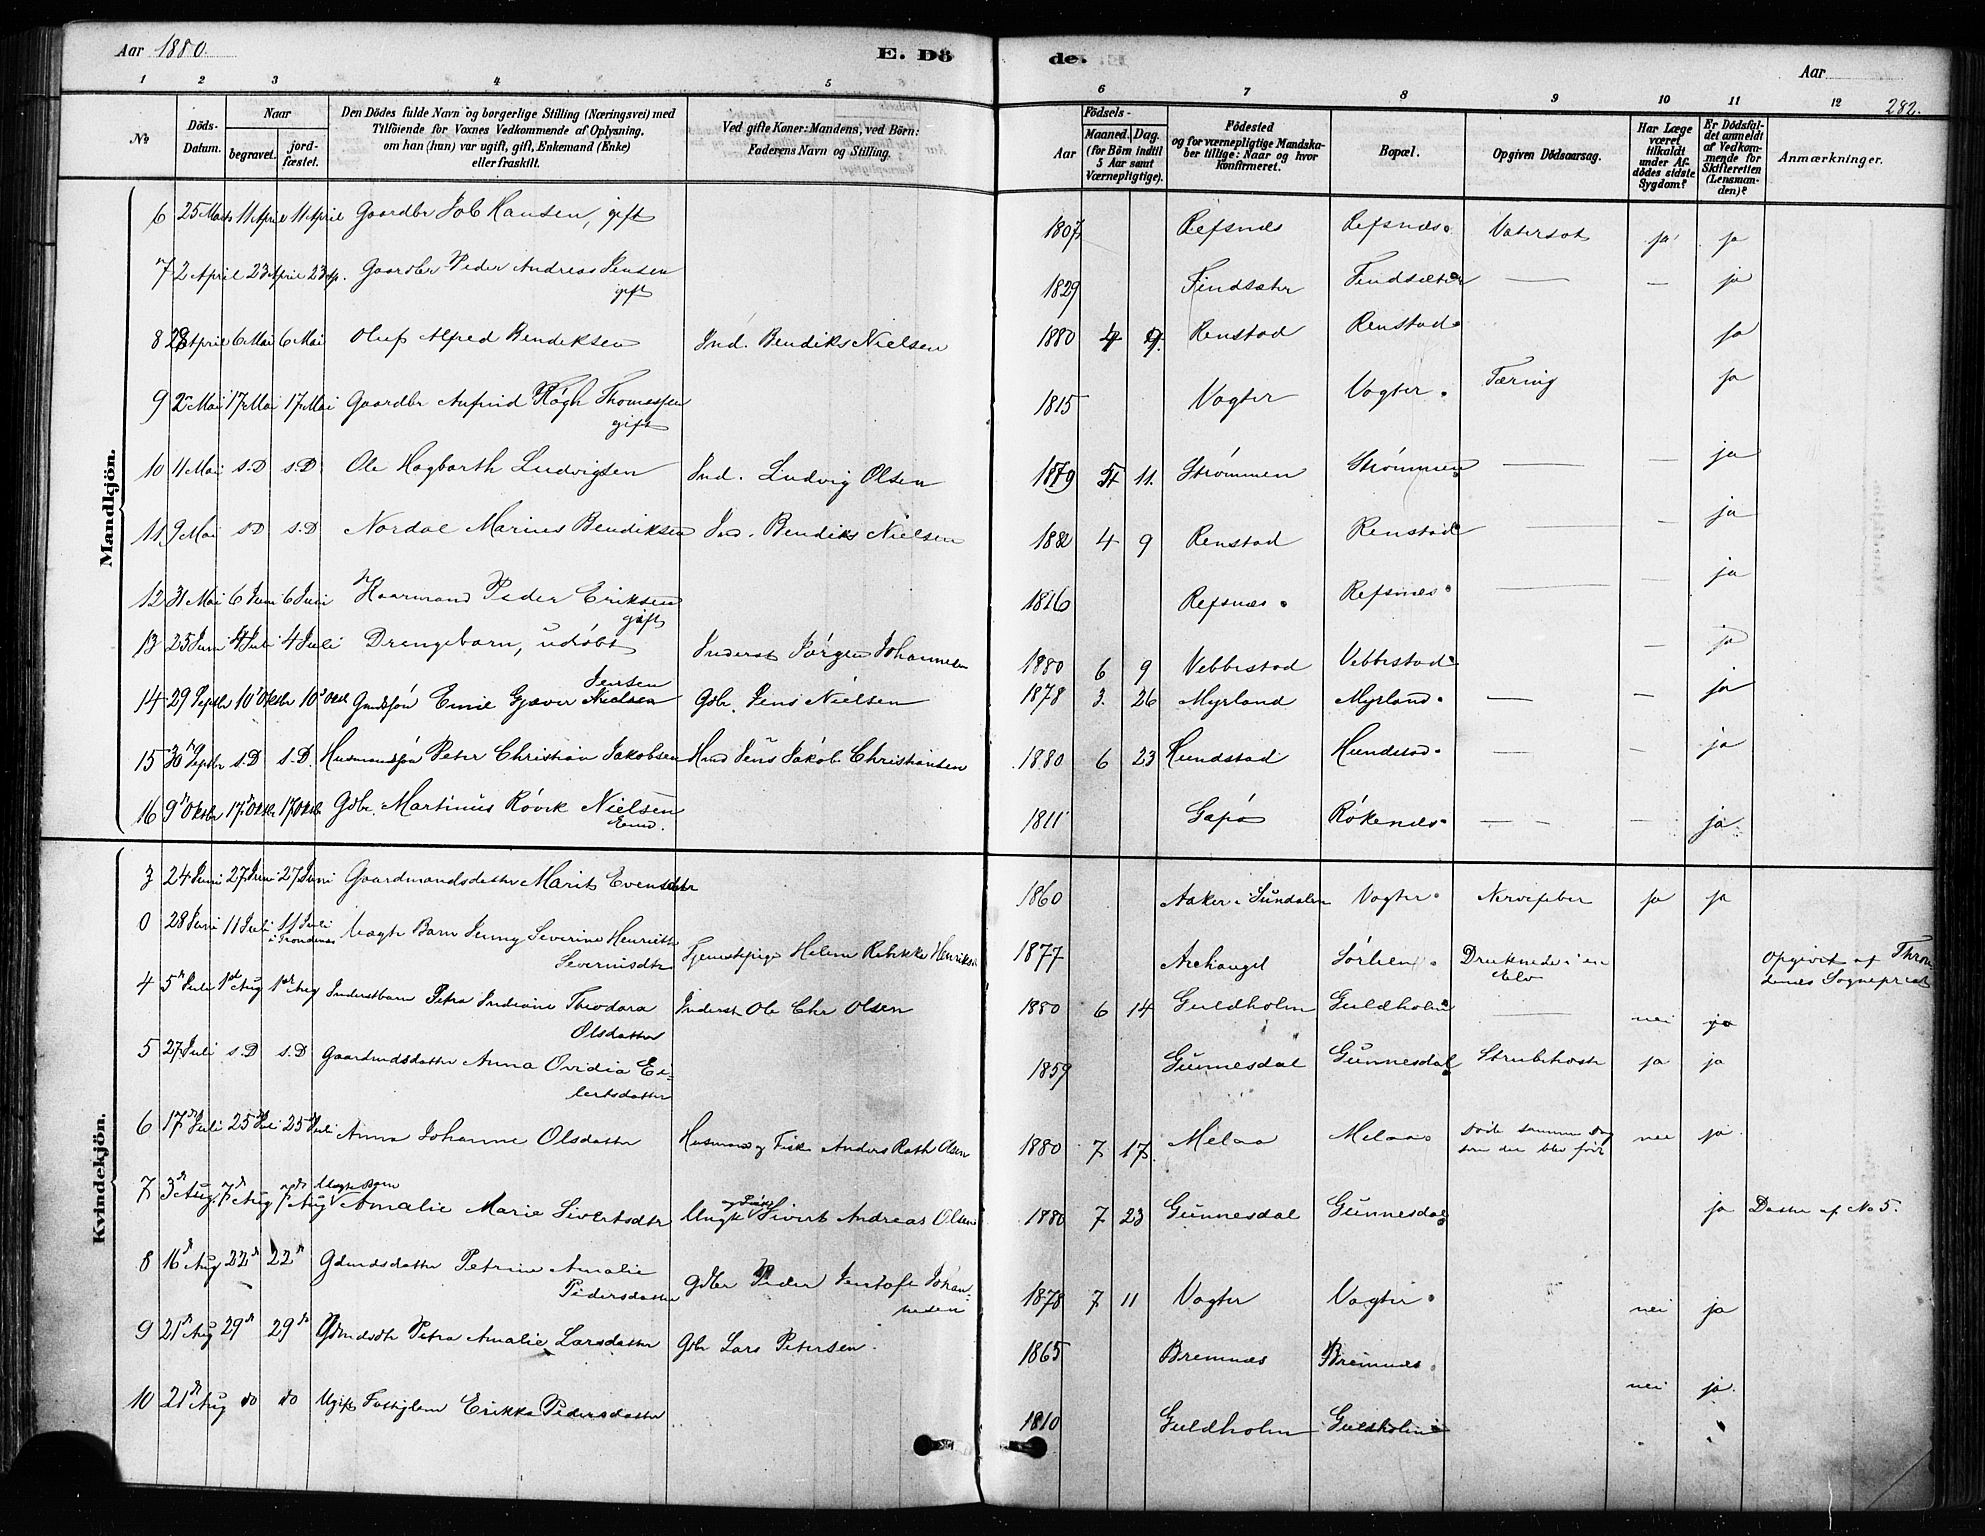 Aar 1880.
E. Dö
de.
Aar
282.
1 2 3 4 5 6 7 8 9 10 11 12
No
Döds-
Datum.
Naar
begravet.
jord-
fæstet.
Den Dödes fulde Navn og borgerlige Stilling (Næringsvei) med
Tilföiende for Voxnes Vedkommende af Oplysning.
om han (hun) var ugift, gift, Enkemand (Enke)
eller fraskilt.
Ved gifte Koner: Mandens, ved Börn:
Faderens Navn og Stilling.
Födsels-
Aar
Maaned.
Dag.
(for Börn indtil
5 Aar samt
Værnepligtige).
Födested
og for værnepligtige Mandska-
ber tillige: Naar og hvor
konfirmeret.
Bopæl.
Opgiven Dödsaarsag.
Har Læge
været
tilkaldt
under Af-
dödes sidste
Sygdom?
Er Dödsfal-
det anmeldt
af Vedkom-
mende for
Skifteretten
(Lensman-
den)?
Anmærkninger.
Mandkjön.
6 25 Marts 11 April 11 April Gaardbr Job Hansen, gift 1807 Refsnæs Refsnæs Vatersot ja ja
7 2 April 23 April 23 Ap. Gaardbr Peder Andreas Jensen
gift 1829 Findsæter Findsæter — — ja
8 28 April 6 Mai 6 Mai Oluf Alfred Bendiksen Ind. Bendiks Nielsen 1880 4 9. Renstad Renstad ja
9 2 Mai 17 Mai 17 Mai Gaardbr Røgh Thomassen
gift 1815 Vogter Vogter Tæring ja
10 11 Mai s.D s.D. Ole Hagbarth Ludvigsen Ind. Ludvig Olsen 1879 11. Strømmen Strømmen — — ja
11 9 Mai s.D s.D Nordal Marius Bendiksen Ind. Bendiks Nielsen 1880 4 9 Renstad Renstad — — ja
12 31 Mai 6 Juni 6 Juni Kaarmand Peder Eriksen
gift 1816 Refsnæs Refsnæs — — ja
13 25 Juni 4 Juli 4 Juli Drengebarn, udøbt Inderst Jørgen Johannesen 1880 6 9 Vebbestad Vebbestad — ja
14 29 Septbr 10 Oktbr 10 Okt Emil Gjæver Nielsen Jensen Gdbr. Jens Nielsen 1878 3. 26 Myrland Myrland — — ja
15 30 Septbr s.D s.D. Husmandssøn Peter Christian Jakobsen Hmd Jens Jakob Christiansen 1880 6 23 Hundstad Hundstad — — ja
16 9 Oktbr 17 Oktbr 17 Oktbr Gdbr. Martinus Røvik Nielsen
Enkm. 1811 Gapø Røkenæs — — ja
Kvindekjön.
3 24 Juni 27 Juni 27 Juni Gaardmandsdatter Marit Evensdatter 1860 Aaker i Sundalen Vogter Nervefeber ja ja
0 28 Juni 11 Juli 11 Juli
i Trondenæs Uægte Barn Jenny Severine Henriette
Severinsdtr Tjenestepige Helene Rebekka Henriksen 1877 Archangel Sørlien Druknede i en
Elv Opgivet af Thron
denes Sogneprest
4 5 Juli 1st Aug 1st Aug Inderstbarn Petra Indiane Theodora
Olsdatter Inderst Ole Chr Olsen 1880 6 14 Guldholm Guldholm — nei ja
5 27 Juli s.D s.D Gaardmdsdatter Anna Ovidia Ei-
lertsdatter 1859 Gunnesdal Gunnesdal Strubehoste ja ja
6 17 Juli 25 Juli 25 Juli Anna Johanne Olsdatter Husmand og Fisker Anders Rath Olsen 1880 7 17. Melaa Melaa Døde samme Dag
som den blev født nei ja.
7 3 Aug. 7 Aug 7 Aug Uægte Barn
Amalie Marie Sivertsdtr Ungk. og Fisker Sivert Andreas Olsen 1880 7 23 Gunnesdal Gunnesdal ja Datter af No 5.
8 16 Aug 22 22 Gdmdsdatter Petrine Amalie
Pedersdatter Gdbr Peder Jentoft Johan-
nesen 1878 7 11 Vogter Vogter nei ja
9 21 Aug 29 29 Gdmdsdtr Petra Amalie Larsdatter Gdbr Lars Petersen. 1865 Bremnæs Bremnæs nei ja.
10 21 Aug do do Ugift Fattiglem Erikka Pedersdatter 1810 Guldholm Guldholm